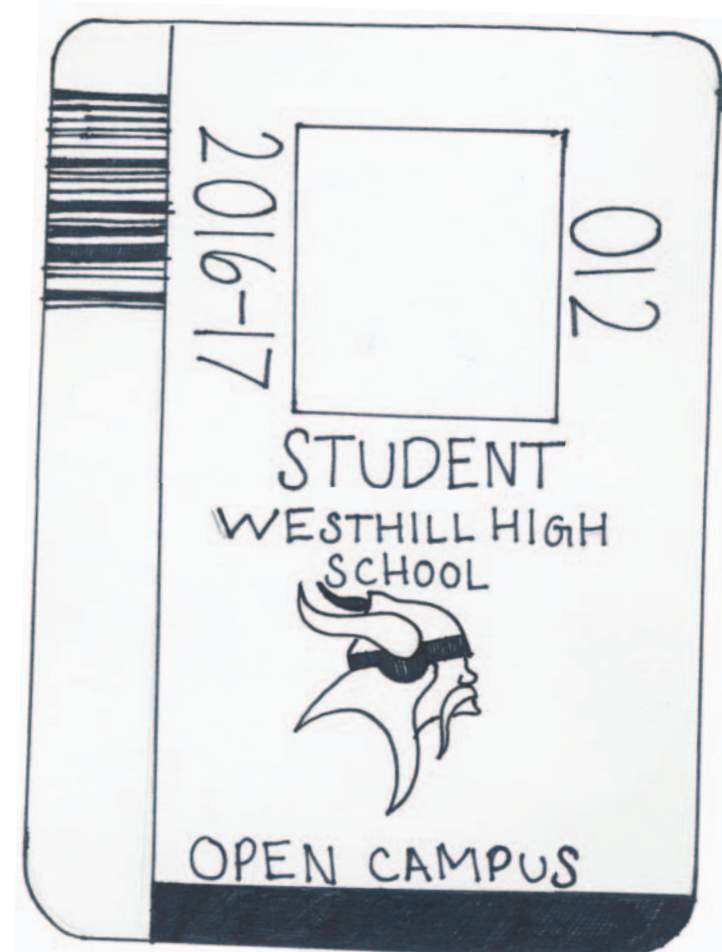 2016-17
012
STUDENT
WESTHILL HIGH
SCHOOL
OPEN CAMPUS